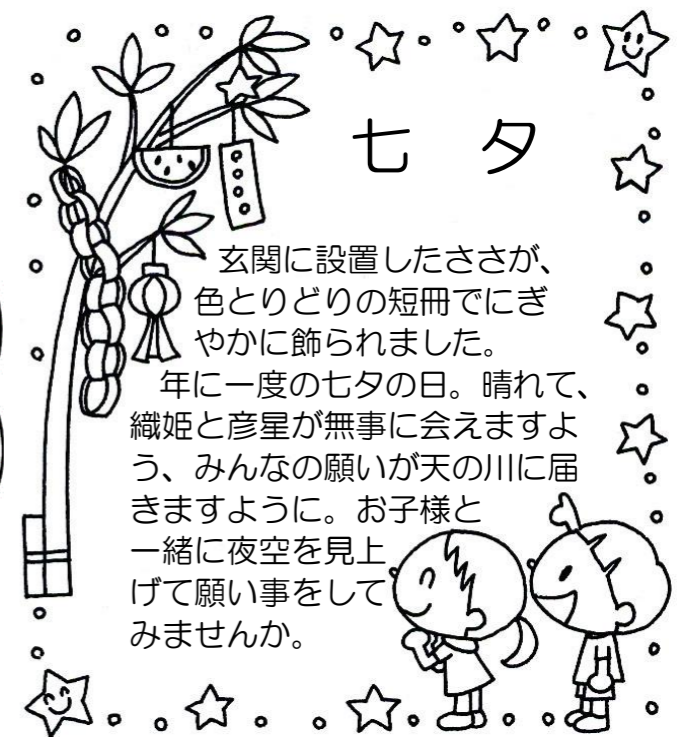 七 夕
玄関に設置したささが、
色とりどりの短冊でにぎ
やかに飾られました。
年に一度の七夕の日。晴れて、
織姫と彦星が無事に会えますよ
う、みんなの願いが天の川に届
きますように。お子様と
一緒に夜空を見上
げて願い事をして
みませんか。